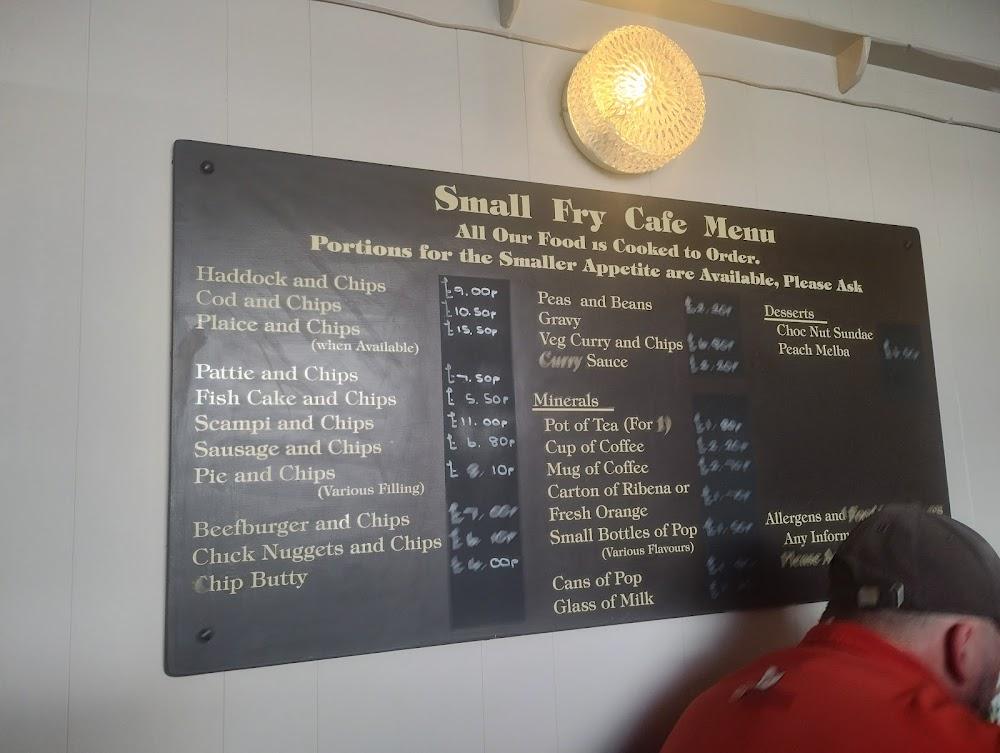 Small Fry Cafe Menu
All Our Food is Cooked to Order.
Portions for the Smaller Appetite are Available, Please Ask
Haddock and Chips £9.00p
Cod and Chips £10.50p
Plaice and Chips £15.50p
(when Available)
Pattie and Chips £7.50p
Fish Cake and Chips £5.50p
Scampi and Chips £11.00p
Sausage and Chips £6.80p
Pie and Chips £8.10p
(Various Filling)
Beefburger and Chips
Chick Nuggets and Chips
Chip Butty
Peas and Beans
Gravy
Veg Curry and Chips
Curry Sauce
Minerals
Pot of Tea (For 1)
Cup of Coffee
Mug of Coffee
Carton of Ribena or
Fresh Orange
Small Bottles of Pop
(Various Flavours)
Cans of Pop
Glass of Milk
Desserts
Choc Nut Sundae
Peach Melba
Allergens and
Any